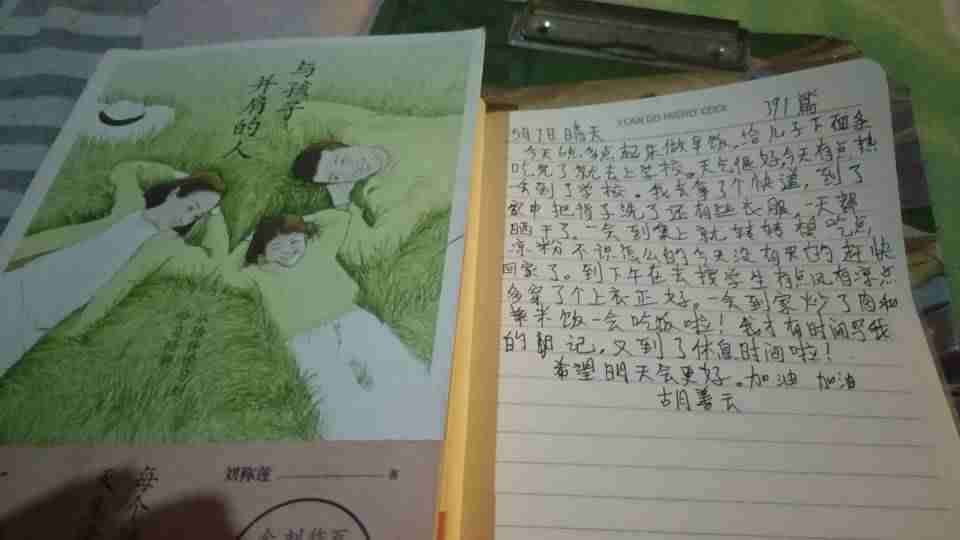 与孩子
并肩的人
刘称莲 著
每个
YOU CAN DO HIGHLY COOL
391篇
5月7日 晴天
今天6点多起来做早饭。给儿子下面条
吃完了就去上学校。天气很好今天有点热
一会到了学校。我去拿了个快递,到了
家中把褂子洗了还有些衣服,一天都
晒干了。一会到集上就转转想吃点
凉粉不识怎么的今天没有卖的赶快
回家了。到下午在去接学生有点风有凉点
多穿了个上衣正好。一会到家炒了肉和
米饭一会吃饭啦!我才有时间写我
的日记,又到了休息时间啦!
希望明天会更好。加油 加油
胡善云